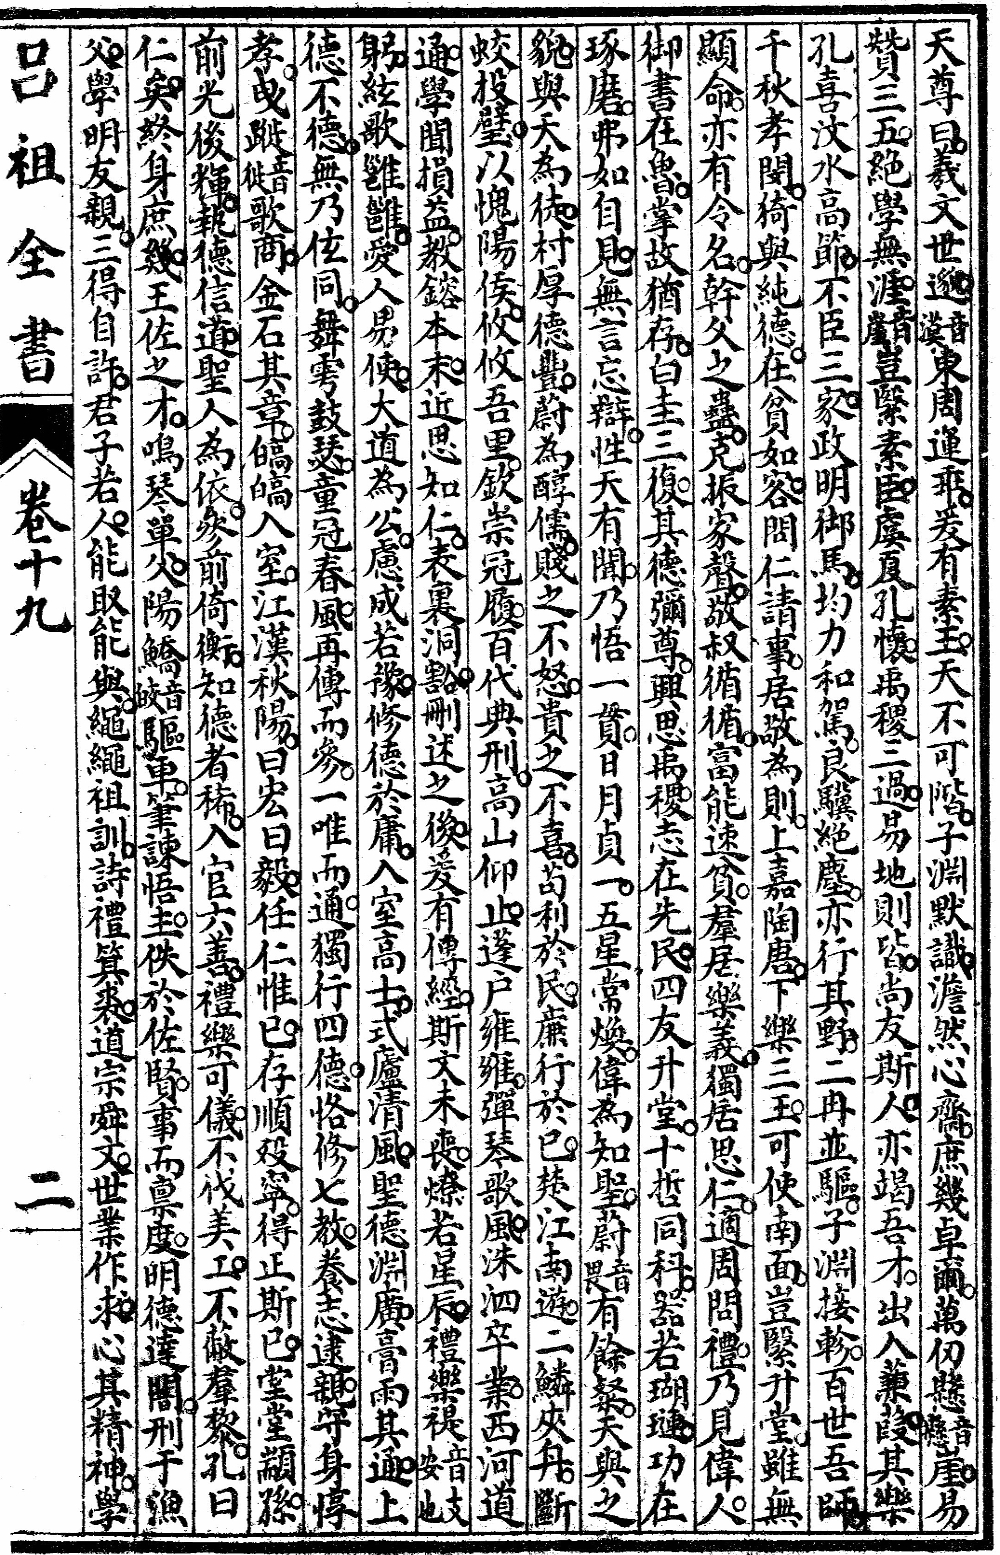 天尊曰羲文世邈音漠東周運乖爰有素王天不可階子淵默識澹然心齋庶幾卓爾萬仞懸音縣崖易
贊三五絕學無涯音崖豈緊素臣虞夏孔懷禹稷三過易地則皆尚友斯人亦竭吾才出入蒹葭其樂
孔喜汶水高節不臣三家政明御馬均力和駕良驥絕塵亦行其野二冉並驅子淵接軫百世吾師
千秋孝閔猗與純德在貧如客問仁請事居敬為則上嘉陶唐下樂三王可使南面豈緊升堂雖無
顯命亦有令名幹父之蠱克振家聲敬叔循循富能速貧羣居樂義獨居思仁適周問禮乃見偉人
御書在魯掌故猶存白圭三復其德彌尊興思禹稷志在先民四友升堂十哲同科器若瑚璉功在
琢磨弗如自見無言忘辯性天有聞乃悟一貫日月貞一五星常煥偉為知聖蔚音畏有餘粲天與之
貌與天為徒材厚德豐蔚為醇儒賤之不怒貴之不喜苟利於民廉行於已楚江南遊二鱗夾舟斷
蛟投璧以愧陽侯攸攸吾里欽崇冠履百代典刑高山仰止蓬戶雍雍彈琴歌風洙泗卒業西河道
通學聞損益教鎔本末近思知仁表裏洞豁刪述之後爰有傳經斯文未喪燎若星辰禮樂禔音支安也
躬絃歌雝雝愛人易使大道為公慮成若豫修德於庸入室高士式廬清風聖德淵廣膏雨其通上
德不德無乃佐同舞雩鼓瑟童冠春風再傳而參一唯而通獨行四德恪修七教養志逮親守身惇
孝曳蹝音徙歌商金石其章皜皜入室江漢秋陽曰宏曰毅任仁惟已存順歿寧得正斯已堂堂顓孫
前光後輝執德信道聖人為依參前倚衡知德者稀入官六善禮樂可儀不伐美工不敝羣黎孔曰
仁矣終身庶幾王佐之才鳴琴單父陽鱎音皎驅車筆諫悟主佚於佐賢事而稟度明德達關刑于漁
父學明友親三得自許君子若人能取能與繩繩祖訓詩禮箕裘道宗舜文世業作求心其精神學
呂祖全書
卷十九
二